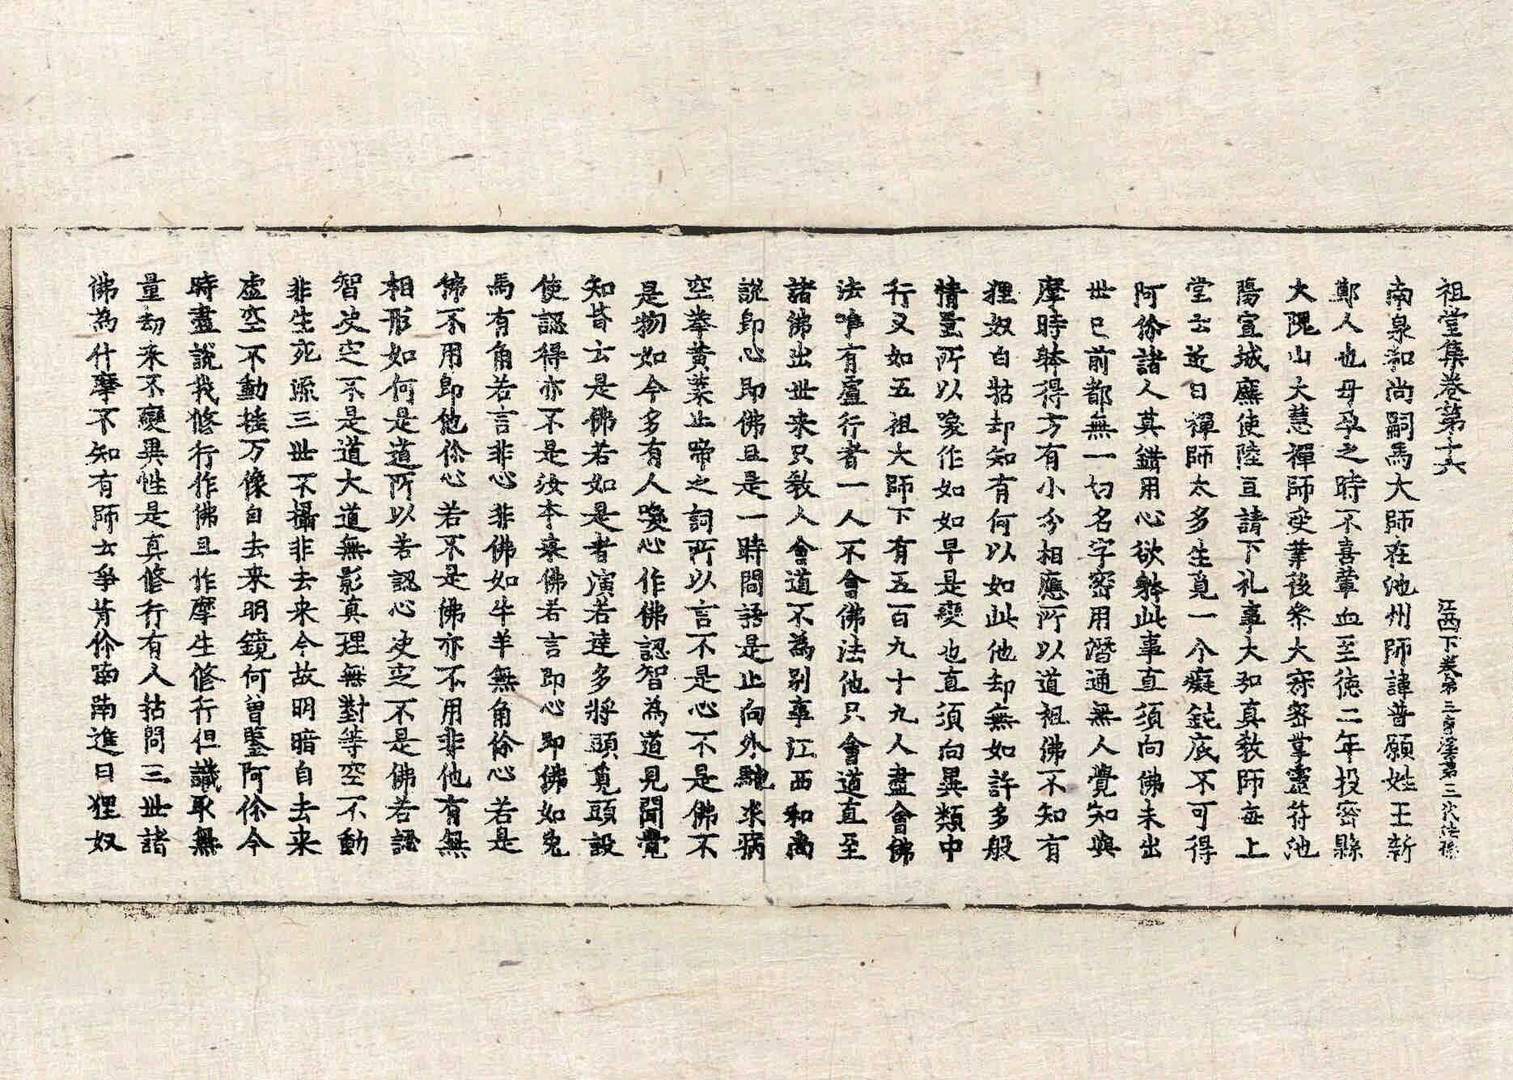 祖堂集卷第十六 江西下卷第三曹溪第三代法孫
南泉和尚嗣馬大師在池州師諱普願姓王新
鄭人也母孕之時不喜葷血至德二年投密縣
大隗山大慧禪師受業後參大寂密掌靈符池
陽宣城廉使陸亘請下礼事大和真教師每上
堂云近日禪師太多生覓一个癡鈍底不可得
阿你諸人莫錯用心欲躰此事直須向佛未出
世已前都無一切名字密用潛通無人覺知與
摩時躰得方有小分相應所以道祖佛不知有
狸奴白牯却知有何以如此他却無如許多般
情量所以喚作如如早是變也直須向異類中
行又如五祖大師下有五百九十九人盡會佛
法唯有盧行者一人不會佛法他只會道直至
諸佛出世來只教人會道不為別事江西和尚
說即心即佛且是一時間語是止向外馳求病
空拳黃葉止啼之詞所以言不是心不是佛不
是物如今多有人喚心作佛認智為道見聞覺
知皆云是佛若如是者演若達多將頭覓頭設
使認得亦不是汝本來佛若言即心即佛如兔
馬有角若言非心非佛如牛羊無角你心若是
佛不用即他你心若不是佛亦不用非他有無
相形如何是道所以若認心決定不是佛若認
智決定不是道大道無影真理無對等空不動
非生死流三世不攝非去来今故明暗自去来
虛空不動搖万像自去来明鏡何曾鑒阿你今
時盡說我修行作佛且作摩生修行但識取無
量劫来不變異性是真修行有人拈問三世諸
佛為什摩不知有師云爭肯你喃喃進曰狸奴